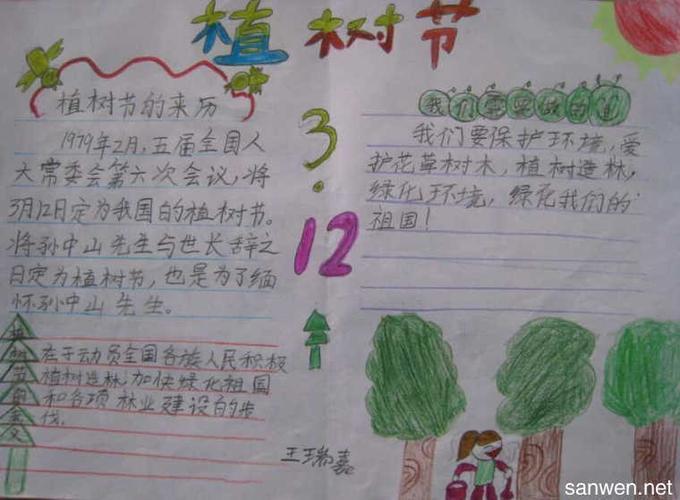 植树节
植树节的来历
1979年2月,五届全国人
大常委会第六次会议,将
3月12日定为我国的植树节。
将孙中山先生与世长辞之
日定为植树节,也是为了缅
怀孙中山先生。
3.12
我们需要做的是
我们要保护环境,爱
护花草树木,植树造林,
绿化环境,绿化我们的
祖国!
植树节的意义
在于动员全国各族人民积极
植树造林,加快绿化祖国
和各项林业建设的步
伐。
王瑞嘉
sanwen.net